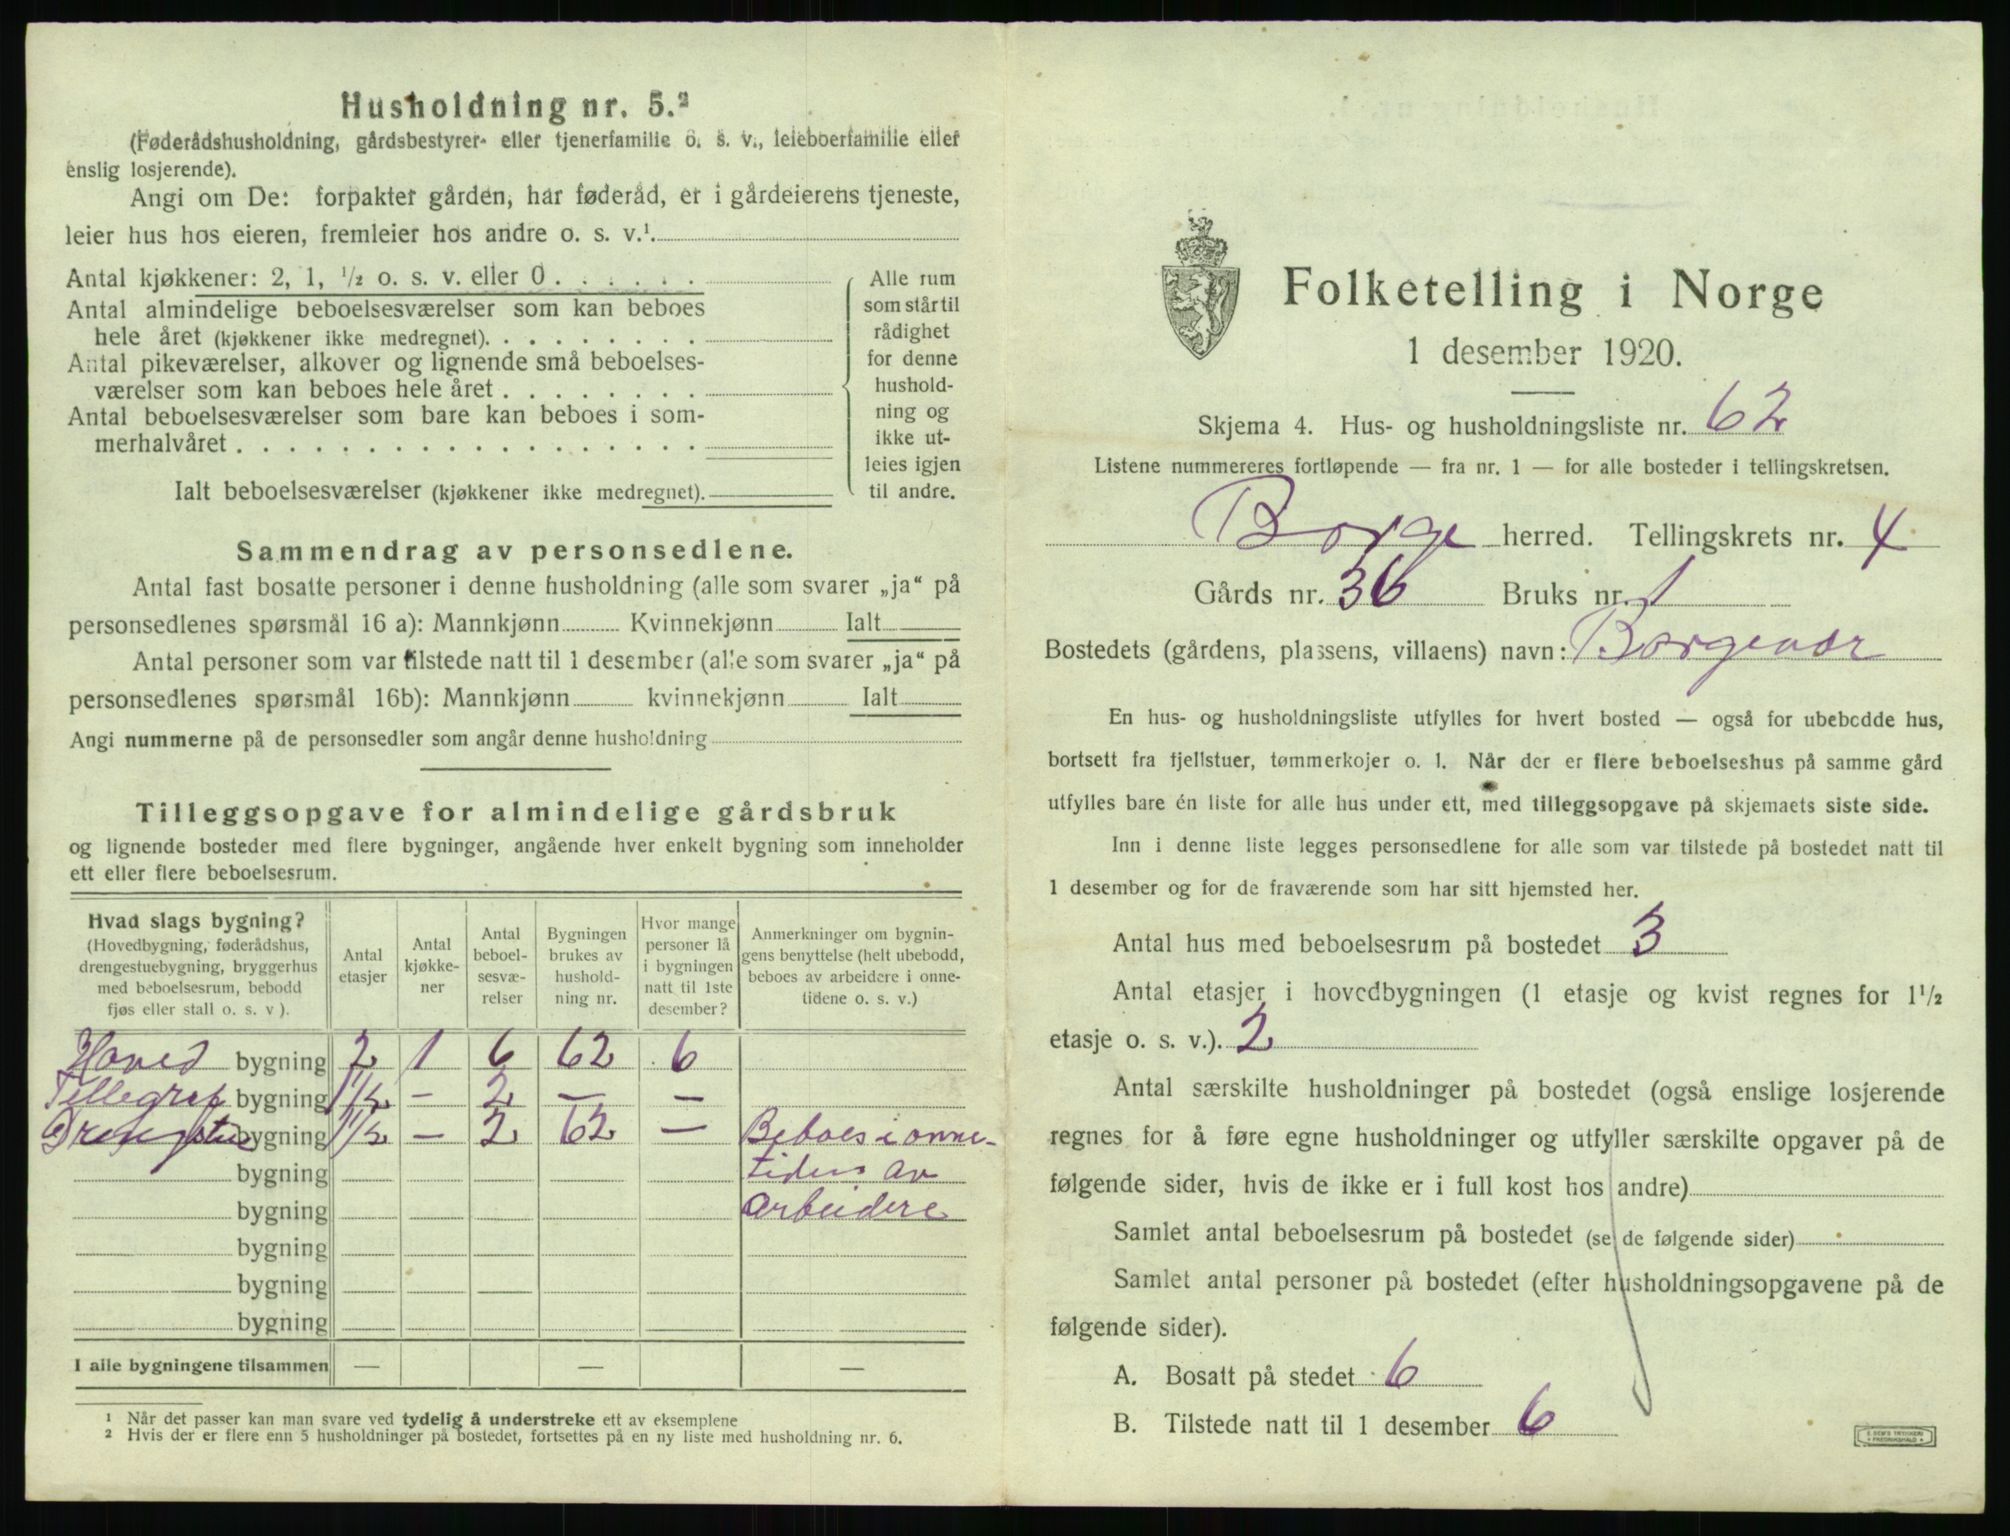 Husholdning nr. 5.²
(Føderådshusholdning, gårdsbestyrer- eller tjenerfamilie o. s. v., leieboerfamilie eller
enslig losjerende).
Angi om De: forpakter gården, har føderåd, er i gårdeierens tjeneste,
leier hus hos eieren, fremleier hos andre o. s. v.¹.
Antal kjøkkener: 2, 1, ½ o. s. v. eller 0 . . . . . .
Antal almindelige beboelsesværelser som kan beboes
hele året (kjøkkener ikke medregnet). . . . . . . . .
Antal pikeværelser, alkover og lignende små beboelses-
værelser som kan beboes hele året . . . . . . . .
Antal beboelsesværelser som bare kan beboes i som-
merhalvåret . . . . . . . . . . . . . . . . . .
Ialt beboelsesværelser (kjøkkener ikke medregnet).
Alle rum
som står til
rådighet
for denne
hushold-
ning og
ikke ut-
leies igjen
til andre.
Sammendrag av personsedlene.
Antal fast bosatte personer i denne husholdning (alle som svarer „ja“ på
personsedlenes spørsmål 16 a): Mannkjønn Kvinnekjønn Ialt
Antal personer som var tilstede natt til 1 desember (alle som svarer „ja“ på
personsedlenes spørsmål 16b): Mannkjønn kvinnekjønn Ialt
Angi nummerne på de personsedler som angår denne husholdning
Tilleggsopgave for almindelige gårdsbruk
og lignende bosteder med flere bygninger, angående hver enkelt bygning som inneholder
ett eller flere beboelsesrum.
Hvad slags bygning?
(Hovedbygning, føderådshus,
drengestuebygning, bryggerhus
med beboelsesrum, bebodd
fjøs eller stall o. s. v ).
Antal
etasjer
Antal
kjøkke-
ner
Antal
beboel-
sesvæ-
relser
Bygningen
brukes av
hushold-
ning nr.
Hvor mange
personer lå
i bygningen
natt til 1ste
desember?
Anmerkninger om bygnin-
gens benyttelse (helt ubebodd,
beboes av arbeidere i onne-
tidene o. s. v.)
Hoved bygning 2 1 6 62 6
bygning 1½ — 2 — —
Drengstue bygning 1½ — 2 62 — Beboes i onne-
bygning tidens av
bygning arbeidere
bygning
bygning
bygning
I alle bygningene tilsammen — — —
¹ Når det passer kan man svare ved tydelig å understreke ett av eksemplene
² Hvis der er flere enn 5 husholdninger på bostedet, fortsettes på en ny liste med husholdning nr. 6.
Folketelling i Norge
1 desember 1920.
Skjema 4. Hus- og husholdningsliste nr. 62
Listene nummereres fortløpende — fra nr. 1 — for alle bosteder i tellingskretsen.
Borge herred. Tellingskrets nr. 4
Gårds nr. 36 Bruks nr. 1
Bostedets (gårdens, plassens, villaens) navn: Borgevar
En hus- og husholdningsliste utfylles for hvert bosted — også for ubebodde hus,
bortsett fra fjellstuer, tømmerkojer o. l. Når der er flere beboelseshus på samme gård
utfylles bare én liste for alle hus under ett, med tilleggsopgave på skjemaets siste side.
Inn i denne liste legges personsedlene for alle som var tilstede på bostedet natt til
1 desember og for de fraværende som har sitt hjemsted her.
Antal hus med beboelsesrum på bostedet 3
Antal etasjer i hovedbygningen (1 etasje og kvist regnes for 1½
etasje o. s. v.). 2
Antal særskilte husholdninger på bostedet (også enslige losjerende
regnes for å føre egne husholdninger og utfyller særskilte opgaver på de
følgende sider, hvis de ikke er i full kost hos andre)
Samlet antal beboelsesrum på bostedet (se de følgende sider)
Samlet antal personer på bostedet (efter husholdningsopgavene på de
følgende sider).
A. Bosatt på stedet 6
B. Tilstede natt til 1 desember 6